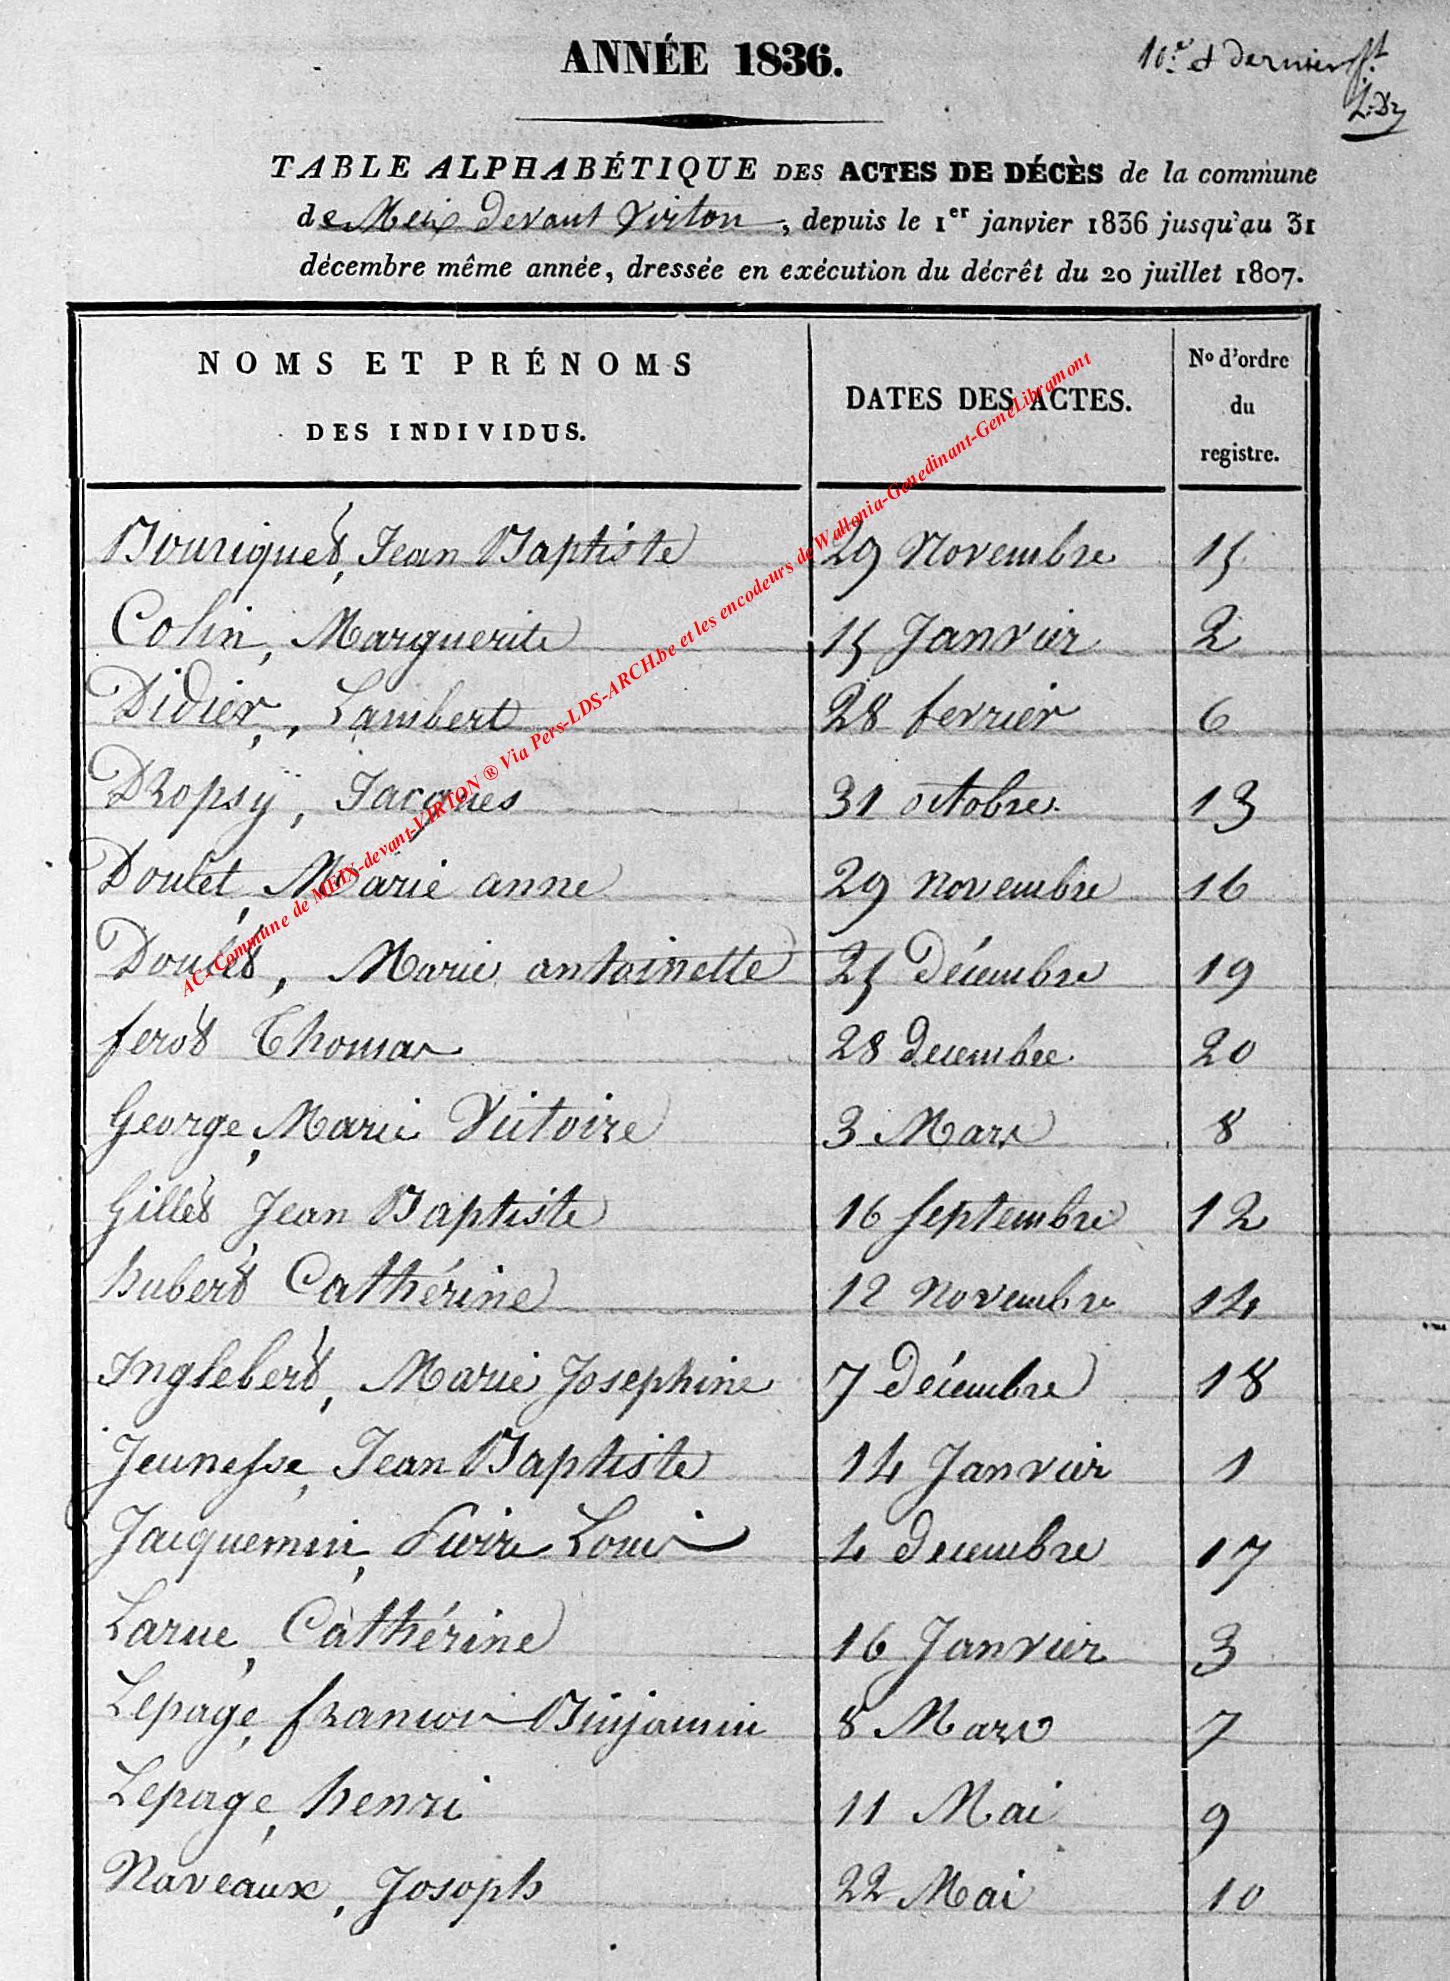 ANNÉE 1836.
10.e et dernier ft.
TABLE ALPHABÉTIQUE DES ACTES DE DÉCÈS de la commune
de Meix devant Virton, depuis le 1er janvier 1836 jusqu'au 31
décembre même année, dressée en exécution du décrêt du 20 juillet 1807.
NOMS ET PRÉNOMS DES INDIVIDUS. DATES DES ACTES. No d'ordre du registre.
Bouriquet, Jean Baptiste 29 Novembre 15
Colin, Marguerite 15 Janvier 2
Didier, Lambert 28 fevrier 6
Dropsÿ, Jacques 31 octobre 13
Doulet, Marie anne 29 novembre 16
Doulet, Marie antoinette 25 Décembre 19
ferot Thomas 28 decembre 20
George, Marie Victoire 3 Mars 8
Gillet Jean Baptiste 16 septembre 12
hubert Cathérine 12 Novembre 14
Inglebert, Marie Josephine 7 Décembre 18
Jeunesse, Jean Baptiste 14 Janvier 1
Jacquemin, Pierre Louis 4 decembre 17
Larue, Cathérine 16 Janvier 3
Lepage, francois Binjamin 8 Mars 7
Lepage, henri 11 Mai 9
Naveaux, Josoph 22 Mai 10
AC-Commune de MEIX-devant-VIRTON ® Via Pers-LDS-ARCH.be et les encodeurs de Wallonia-Genedinant-GeneLibramont